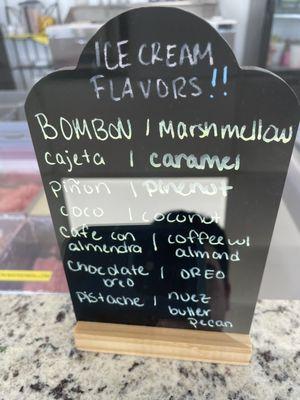 ICE CREAM
FLAVORS!!
BOMBON | Marshmellow
cajeta | caramel
piñon | pinenut
coco | coconut
cafe con | coffee w/
almendra | almond
chocolate | OREO
oreo
pistache | nuez
butter
pecan